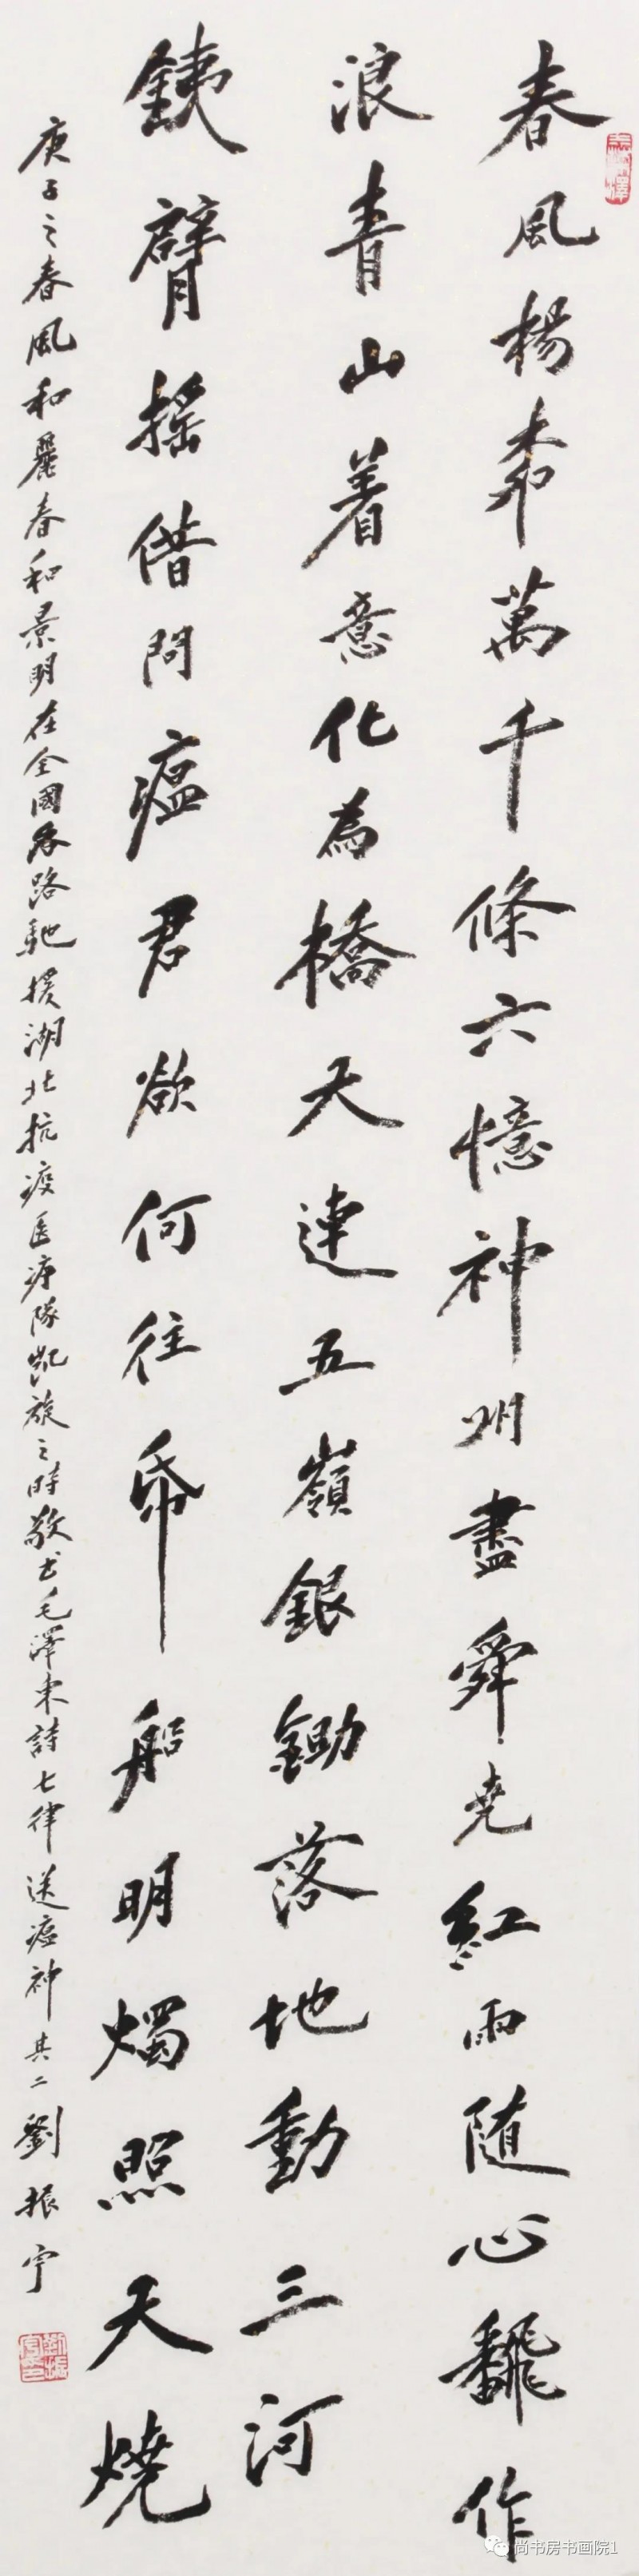 春風楊柳萬千條六憶神州盡舜堯紅雨随心飜作
浪青山着意化為橋天連五嶺銀鋤落地動三河
鉄臂摇借問瘟君欲何往帋船明燭照天燒
庚子之春風和麗春和景明在全國各路馳援湖北抗疫医疗隊凱旋之時敬书毛澤东詩七律送瘟神其二劉振宁
尚书房书画院1